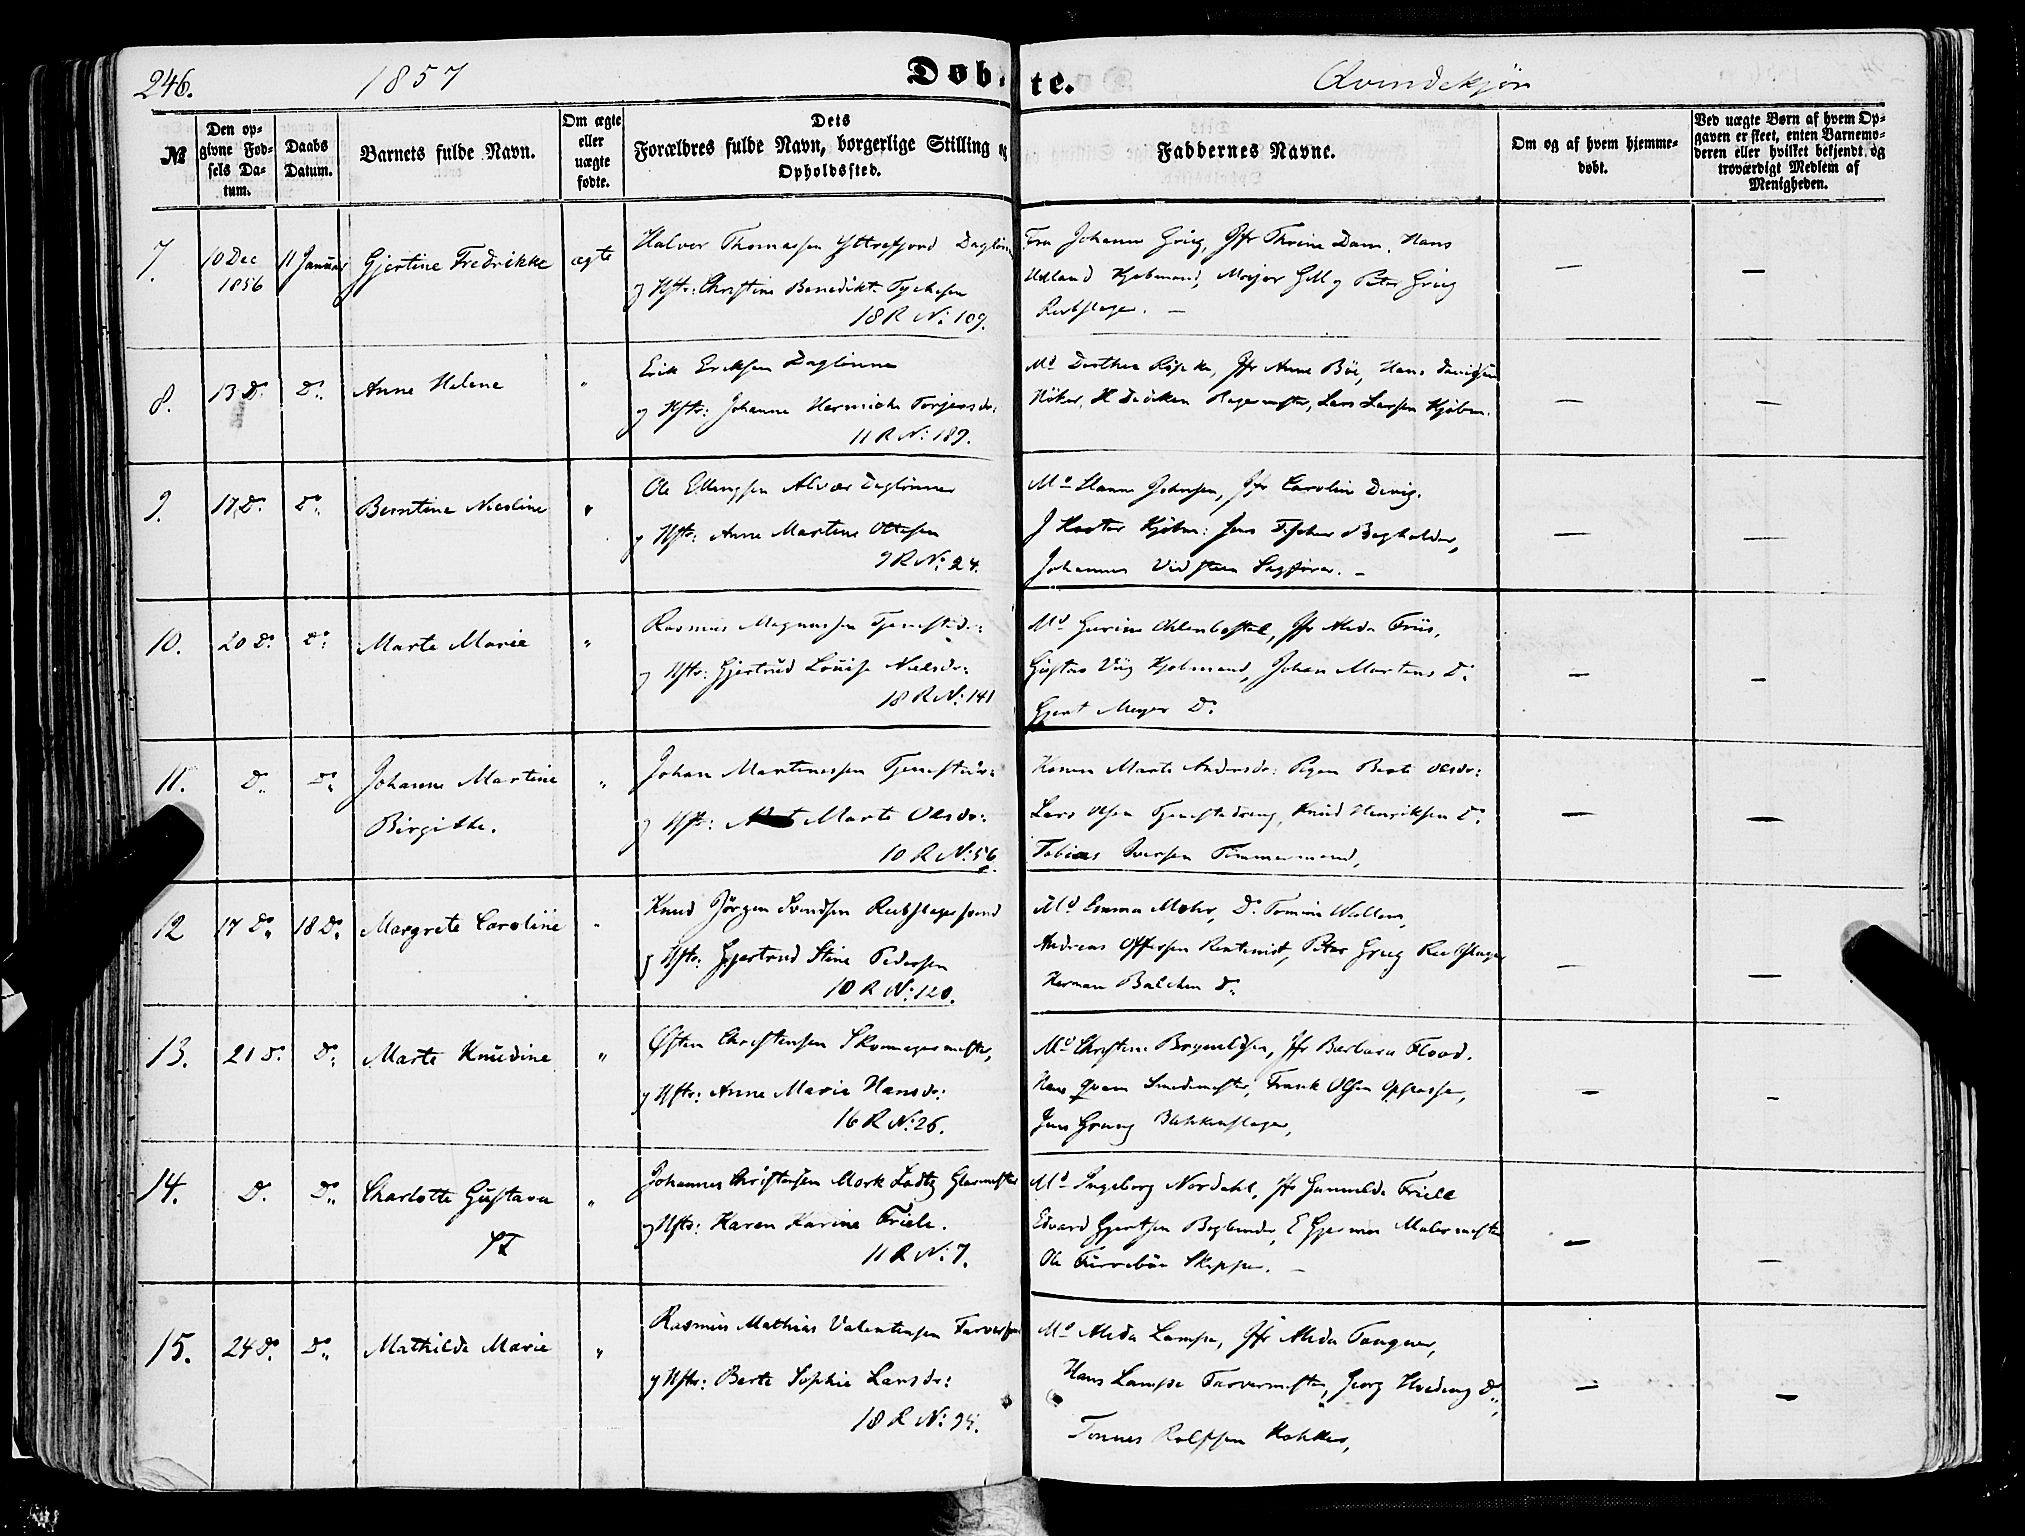 246.
1857
Døbte.
Qvindekjøn
№
Den opgivne Fødsels Datum.
Daabs Datum.
Barnets fulde Navn.
Om ægte eller uægte fødte.
Dets Forældres fulde Navn, borgerlige Stilling og Opholdssted.
Faddernes Navne.
Om og af hvem hjemmedøbt.
Ved uægte Børn af hvem Opgaven er skeet, enten Barnemoderen eller hvilket bekjendt og troværdigt Medlem af Menigheden.
7. 10 Dec 1856 11 Januar Gjertine Fredrikke ægte
Halvor Thomassen Daglønner
og Hstr: Christine Benedikt.
18 R N: 109.
Fru Johanne Grieg, Jfr Thrine Dam. Hans
Kjøbmand, Major og Peter Grieg
Rebslager. —
— —
8. 13 Do Do Anne Helene "
Erik Eriksen Daglønner
og Hstr: Johanne Torjersdr:
11 R N: 189.
Md Dorthea Jfr Anne Böe, Hans Davidsen
Høker, H Lars Larsen Kjøbm.
— —
9. 17 Do Do Berntine Nicoline "
Ole Ellingsen Alvær Daglønner
og Hstr: Anne Martine Olsen
9 R N: 24.
Md Hanne Johnsen, Jfr Caroline
J Kjøbm: Jens Fischer Bogholder,
Johannes Vidsteen Sagfører. —
— —
10. 20 Do Do Marte Marie "
Rasmus Magnussen Tjenestedr:
og Hstr: Gjertrud Louise Nielsdr:
18 R N: 141
Md Jfr Alida Friis,
Gustav Kjøbmand, Johan Martens Do
Gjert Meyer Do
— —
11. Do Do Johanne Martine "
Birgithe.
Johan Martinessen Tjenestedr:
og Hstr: Marte Olsdr:
10 R N: 56
Konen Marte Andersdr: Pigen Berte Olsdr:
Lars Olsen Tjenestedreng, Knud Henriksen Do
Tobias Iversen Tømmermand,
— —
12 17 Do 18 Do Margrete Caroline "
Knud Jörgen Svendsen Rebslagersvend
og Hstr: Gjertrud Stine Pedersen
10 R N: 120.
Md Emma Mohr, Do
Andreas Offesen Rentenist, Peter Grieg Rebslager
Herman Balchen Do
— —
13. 21 Do Do Marte Knudine "
Østen Christensen Skomagermester,
og Hstr: Anne Marie Hansdr:
16 R N: 26.
Md Christine Brynildsen, Jfr Barbara Flood.
Hans Qvam Smedemester, Frank Olsen Oppasser,
Jens Grung
— —
14. Do Do Charlotte Gustava "
Johannes Christensen Mork Glarmester
og Hstr: Karen Karine Friele.
11 R N: 7.
Md Ingeborg Nordahl, Jfr Gunnilda Friele
Edvard Gjertsen Bogbinder, E Malermester
Ole Skipper. —
— —
15. 24 Do Do Mathilde Marie "
Rasmus Mathias Valentinsen
og Hstr: Berte Sophie Larsdr:
18 R N: 94.
Md Alida Lampe, Jfr Alida
Hans Lampe Farvermester, Georg Do
Tønnes Rolfsen
— —